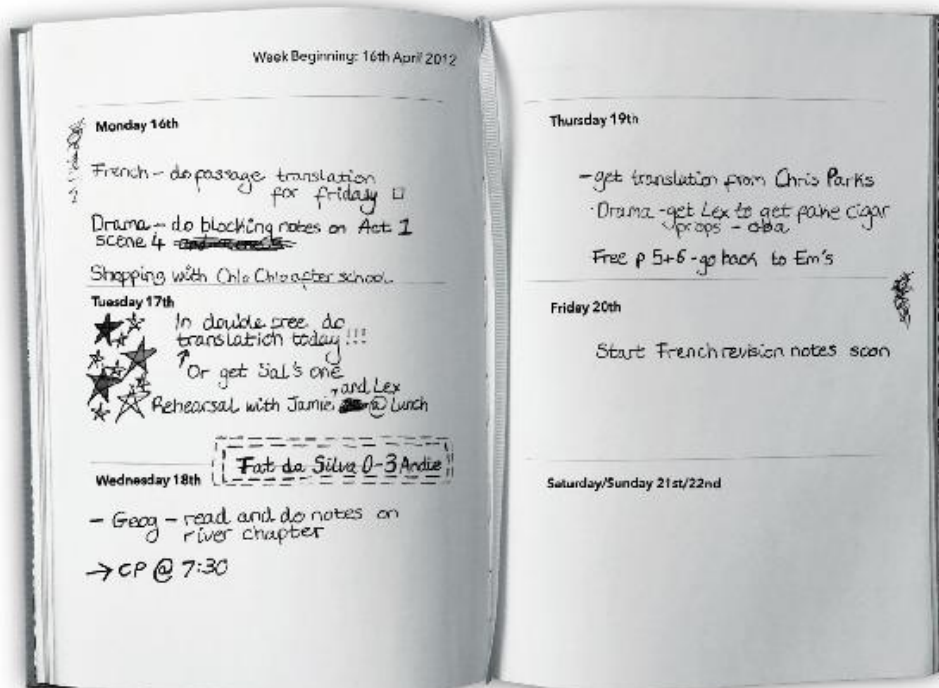 Week Beginning: 16th April 2012
Monday 16th
French – do passage translation
for friday
Drama – do blocking notes on Act 1
scene 4
Shopping with Chlo Chlo after school
Tuesday 17th
In double free do
translation today!!!
Or get Sal's one
and Lex
Rehearsal with Jamie, @ Lunch
Fat da Silva 0-3 Andie
Wednesday 18th
- Geog – read and do notes on
river chapter
→ CP @ 7:30
Thursday 19th
- get translation from Chris Parks
Drama - get Lex to get fake cigar
props -
Free p 5+6 - go back to Em's
Friday 20th
Start French revision notes soon
Saturday/Sunday 21st/22nd